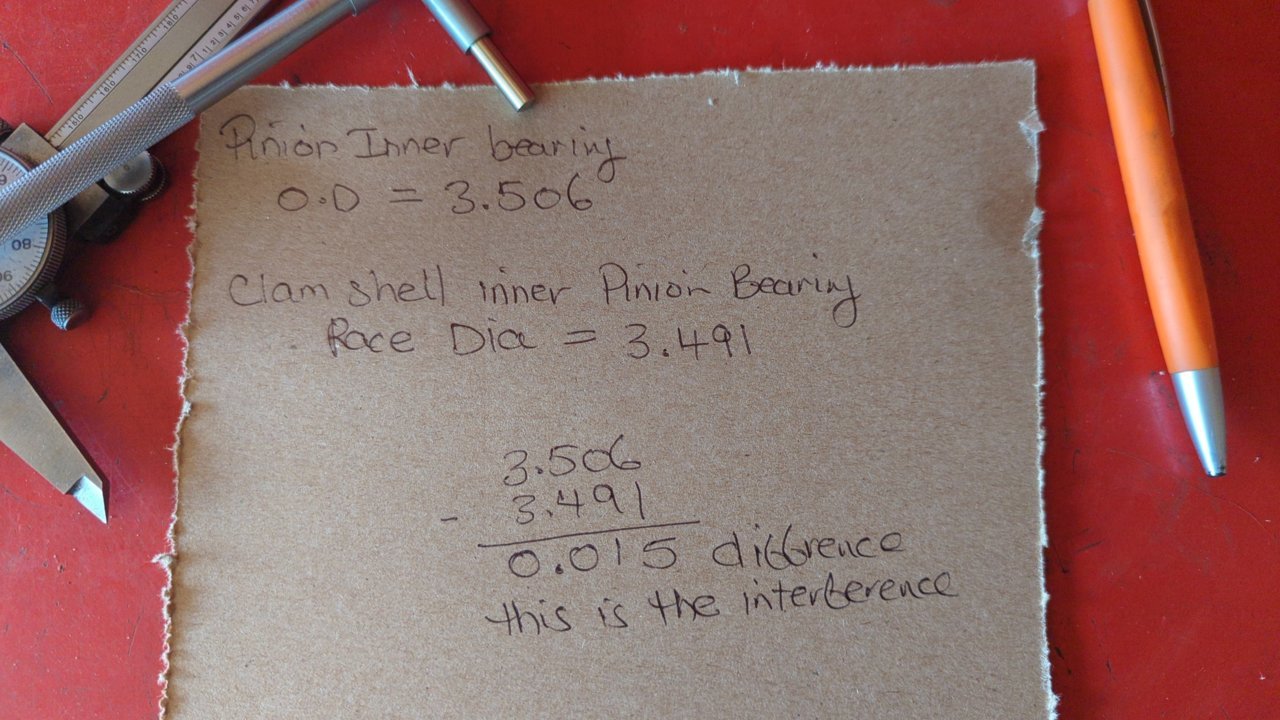 Pinion Inner bearing
O.D = 3.506
Clam shell inner Pinion Bearing
Race Dia = 3.491
3.506
- 3.491
0.015 diffrence
this is the interference